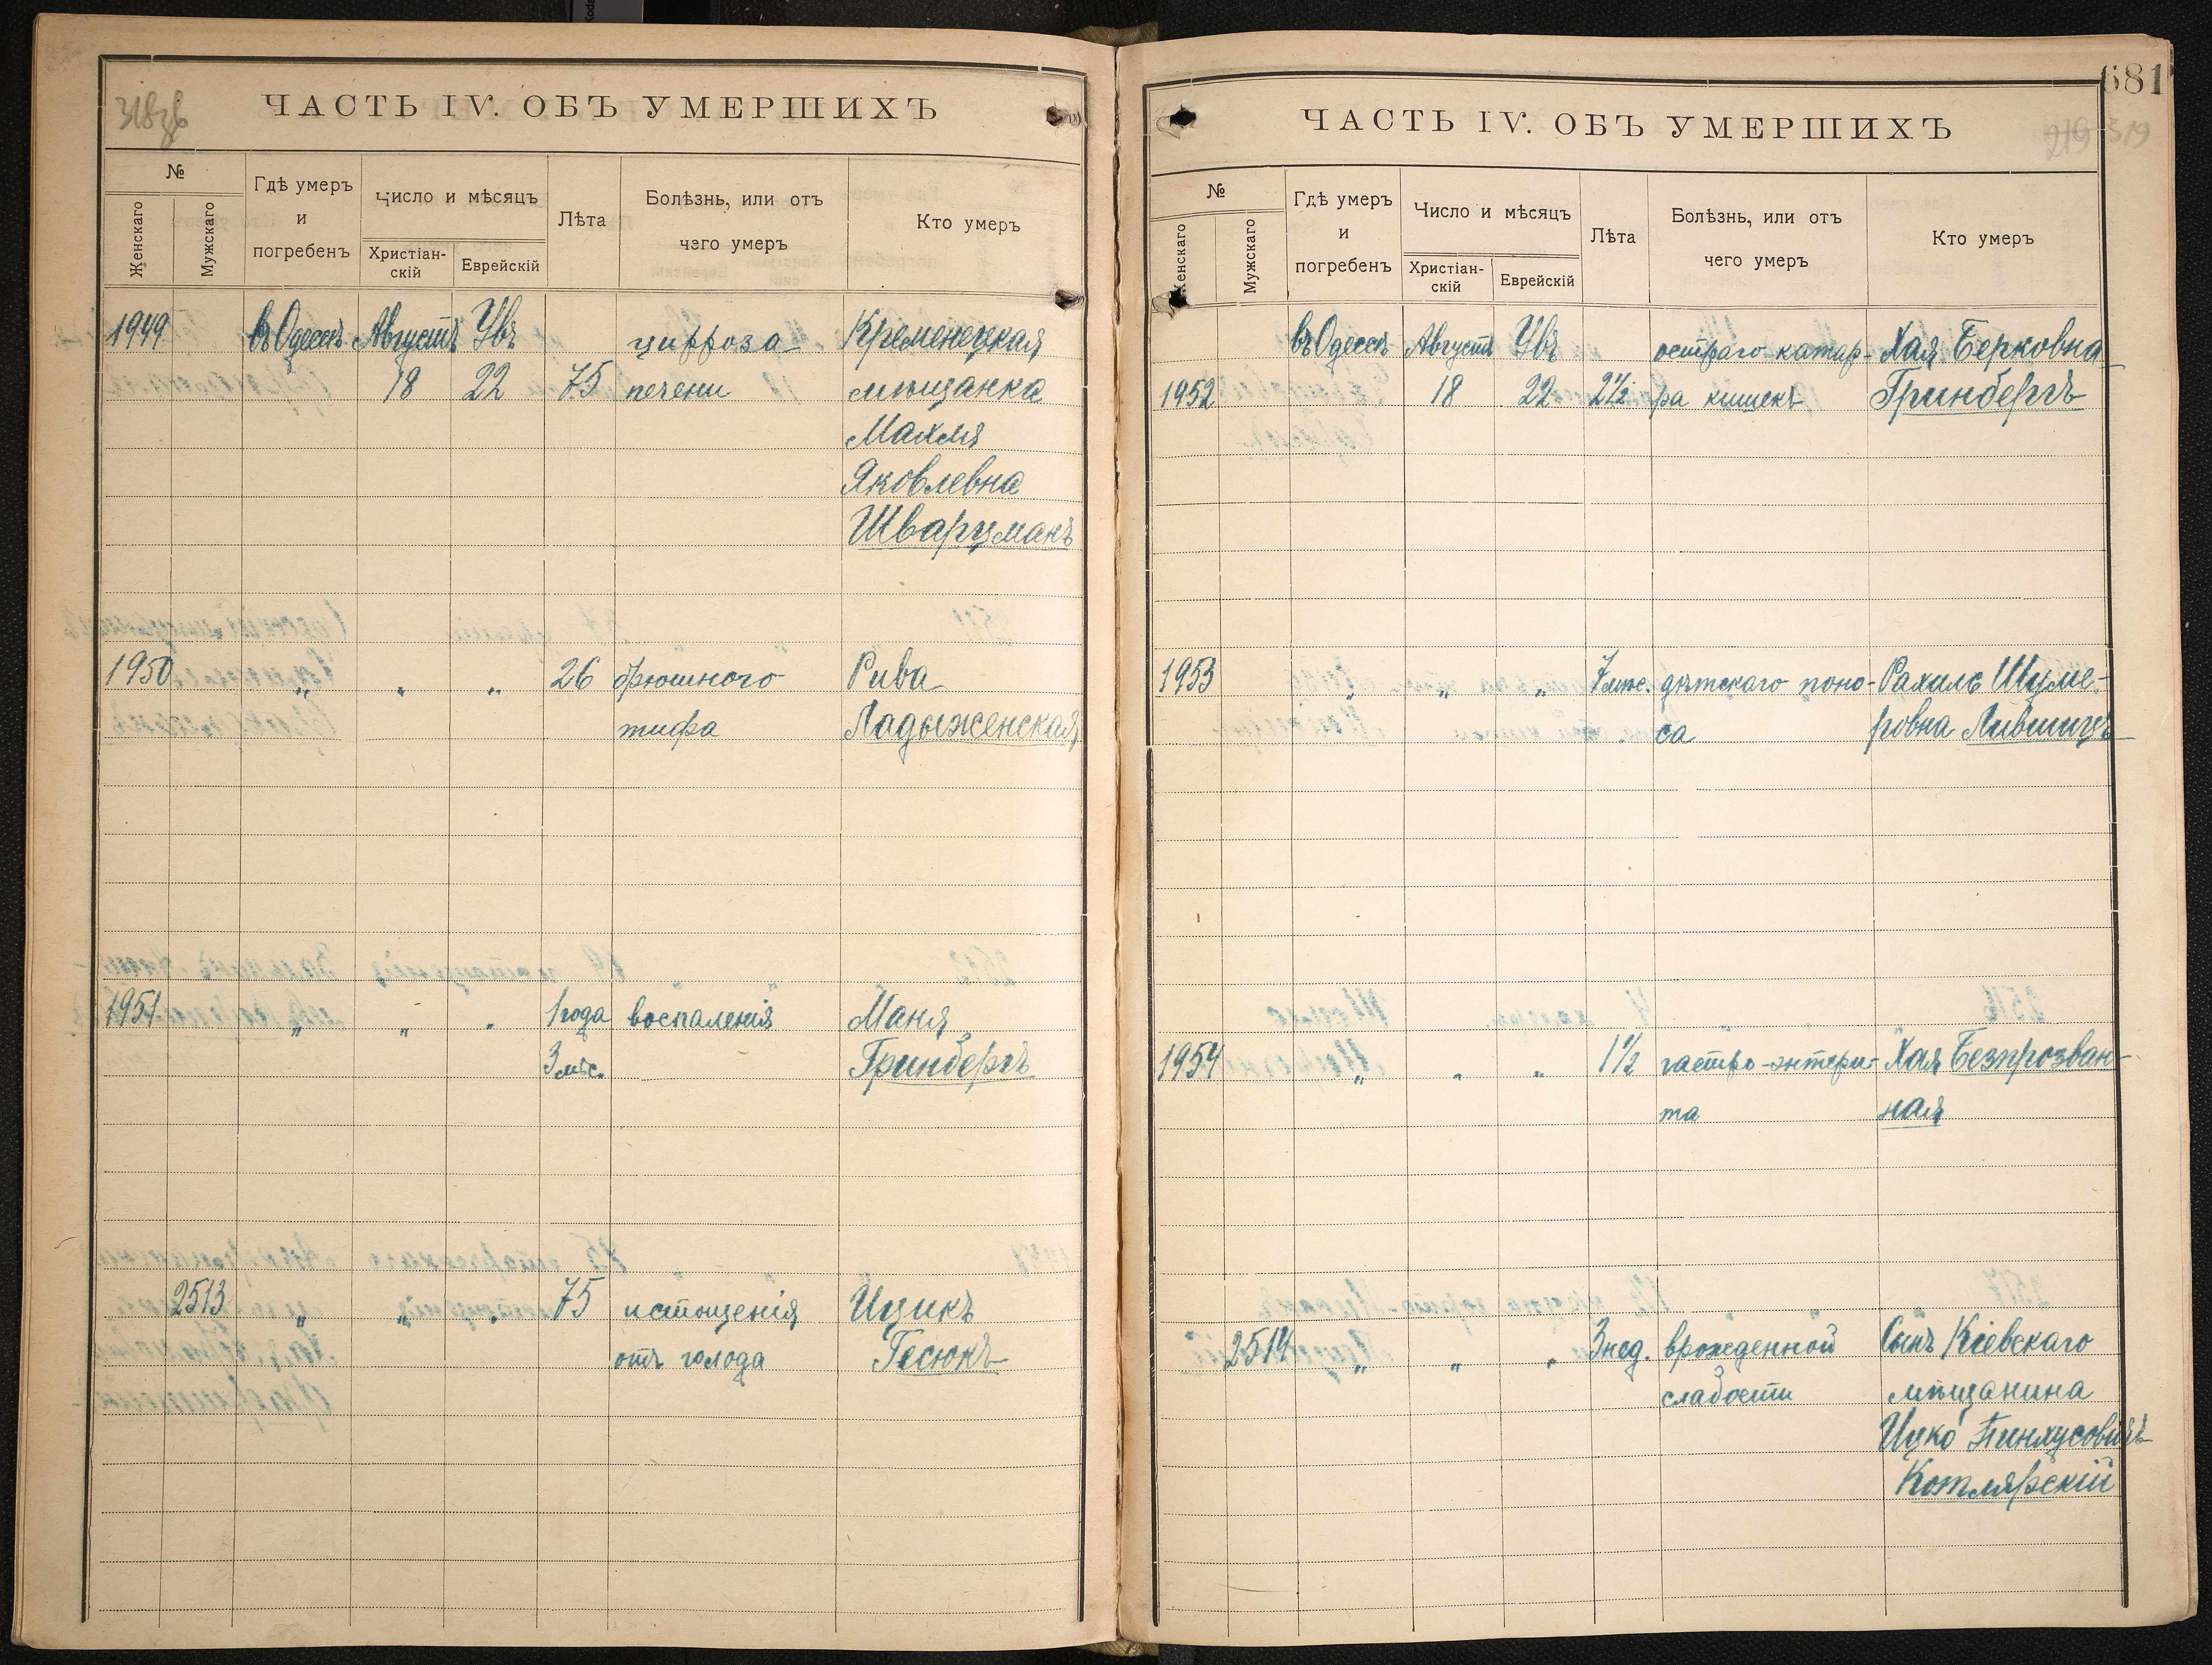 318об
ЧАСТЬ IV. ОБЪ УМЕРШИХЪ
№
Женскаго
Мужскаго
Гдѣ умеръ
и
погребенъ
Число и мѣсяцъ
Христіан-
скій
Еврейскій
Лѣта
Болѣзнь, или отъ
чего умеръ
Кто умеръ
1949 въ Одессѣ Августъ Увъ цирроза Кременецкая
18 22 75 печени мѣщанка
Махля
Яковлевна
Шварцманъ
1950 „ „ „ 26 брюшного Рива
тифа Ладыженская
1951 „ „ „ 1 года воспаленія Маня
3 мѣс. Гринбергъ
2513 „ „ „ 75 истощенія Ицикъ
отъ голода Гесюкъ
681
ЧАСТЬ IV. ОБЪ УМЕРШИХЪ
219 319
№
Женскаго
Мужскаго
Гдѣ умеръ
и
погребенъ
Число и мѣсяцъ
Христіан-
скій
Еврейскій
Лѣта
Болѣзнь, или отъ
чего умеръ
Кто умеръ
въ Одессѣ Августъ Увъ остраго катар- Хая Берковна
1952 18 22 2½ ра кишекъ Гринбергъ
1953 „ „ „ 7 мѣс. дѣтскаго поно- Рахиль Шуме-
са ровна Лившицъ
1954 „ „ „ 1½ гастро-энтери- Хая Безпрозван-
та ная
2514 „ „ „ 3 нед. врожденной Сынъ Кіевскаго
слабости мѣщанина
Ицко Пинхусовичъ
Котлярскій